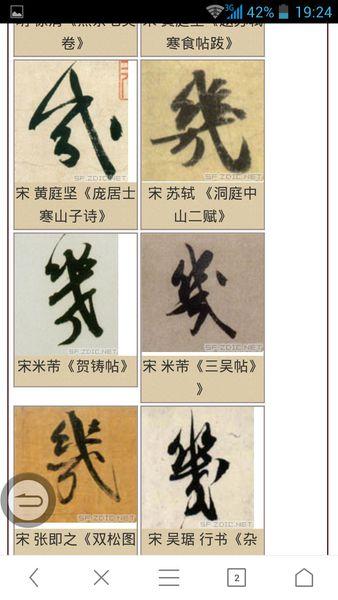 3G 42% 19:24
卷》
寒食帖跋》
幾 幾
SF.ZDIC.NET SF.ZDIC.NET
宋 黄庭坚《庞居士
寒山子诗》
宋 苏轼 《洞庭中
山二赋》
幾 幾
SF.ZDIC.NET SF.ZDIC.NET
宋米芾《贺铸帖》
宋 米芾《三吴帖》
》
幾 幾
SF.ZDIC.NET SF.ZDIC.NET
宋 张即之《双松图
宋 吴琚 行书《杂
2